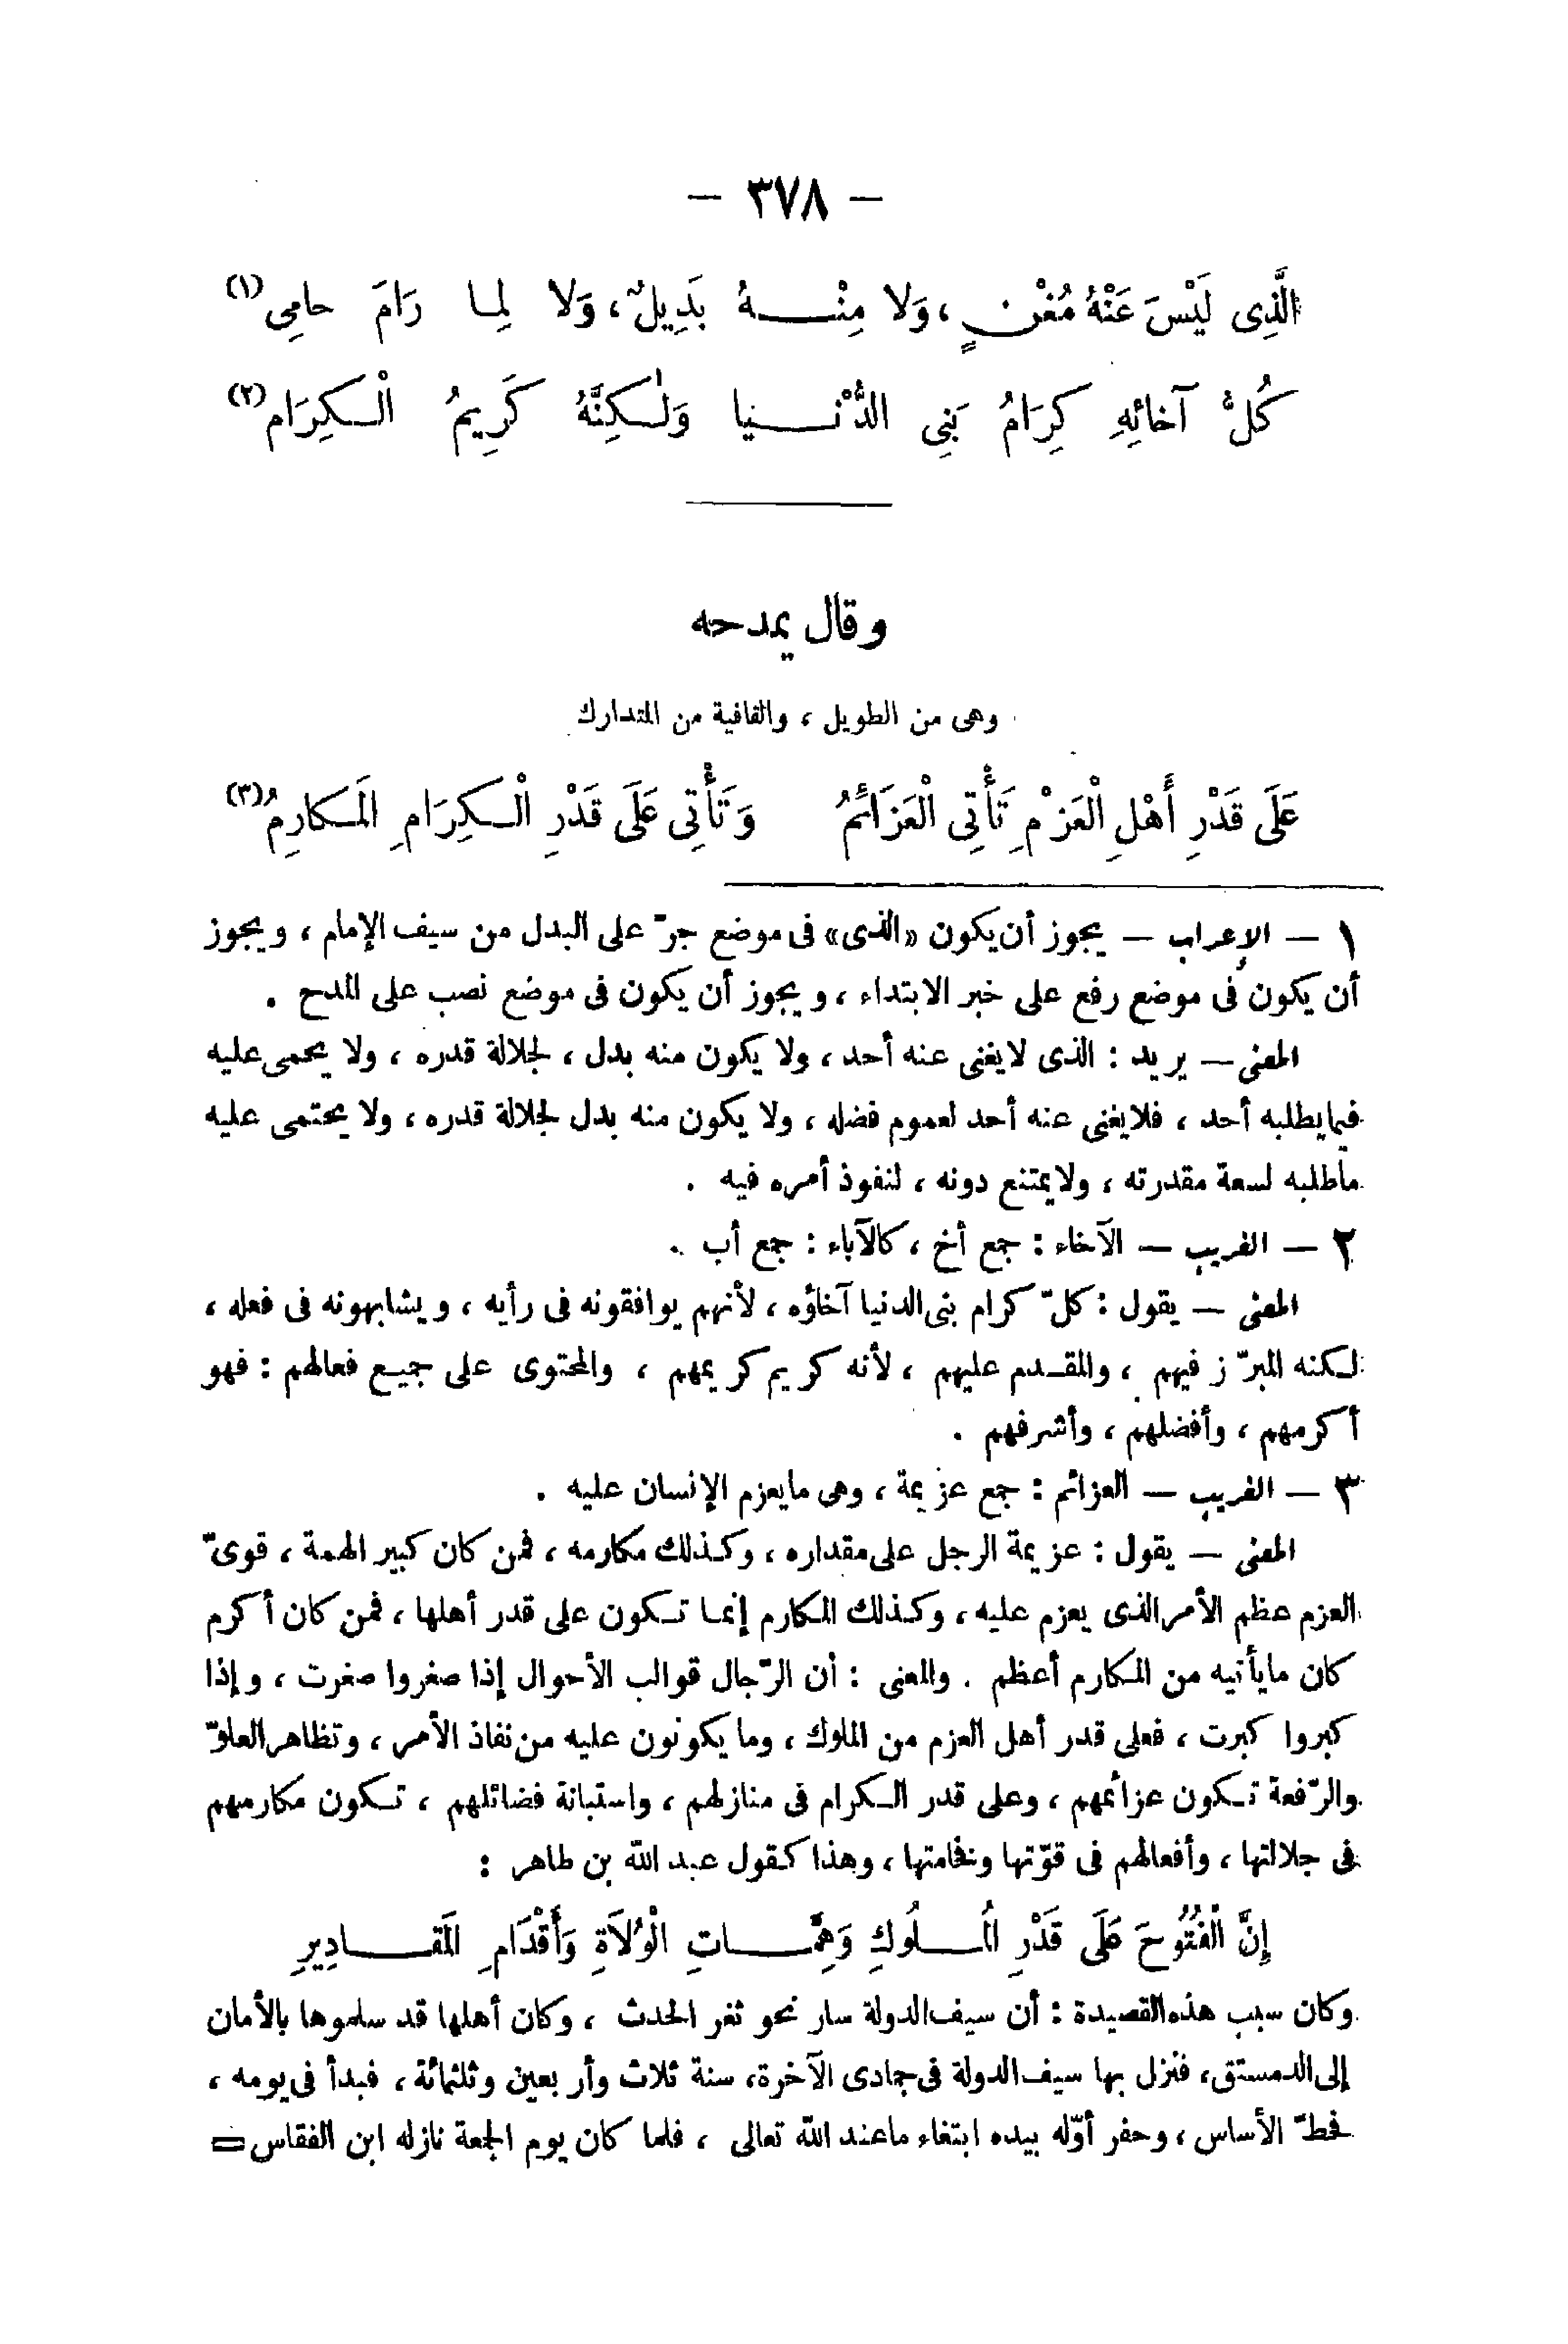 — ٣٧٨ —
الَّذِى لَيْسَ عَنْهُ مُغْنٍ ، وَلا مِنْهُ بَدِيلٌ ، وَلا لِما رَامَ حامِى (١)
كُلُّ آخائِهِ كِرَامُ بَنِى الدُّنْيا وَلٰكِنَّهُ كَرِيمُ الْكِرَامِ (٢)
وقال يمدحه
وهى من الطويل ، والقافية من المتدارك
عَلَى قَدْرِ أَهْلِ الْعَزْمِ تَأْتِى الْعَزَائُمُ وَتَأْتِى عَلَى قَدْرِ الْكِرَامِ المَكارِمُ (٣)
١ — الإعراب — يجوز أن يكون «الذى» فى موضع جرّ على البدل من سيف الإمام ، ويجوز
أن يكون فى موضع رفع على خبر الابتداء ، ويجوز أن يكون فى موضع نصب على المدح .
المعنى — يريد : الذى لايغنى عنه أحد ، ولا يكون منه بدل ، لجلالة قدره ، ولا يحمى عليه
فيما يطلبه أحد ، فلا يغنى عنه أحد لعموم فضله ، ولا يكون منه بدل لجلالة قدره ، ولا يحتمى عليه
ماطلبه لسعة مقدرته ، ولا يمتنع دونه ، لنفوذ أمره فيه .
٢ — الغريب — الآخاء : جمع أخ ، كالآباء : جمع أب .
المعنى — يقول : كلّ كرام بنى الدنيا آخاؤه ، لأنهم يوافقونه فى رأيه ، ويشابهونه فى فعله ،
لكنه المبرّز فيهم ، والمقدم عليهم ، لأنه كريم كريمهم ، والمحتوى على جميع فعالهم : فهو
أكرمهم ، وأفضلهم ، وأشرفهم .
٣ — الغريب — العزائم : جمع عزيمة ، وهى مايعزم الإنسان عليه .
المعنى — يقول : عزيمة الرجل على مقداره ، وكذلك مكارمه ، فمن كان كبير الهمة ، قوىّ
العزم عظم الأمر الذى يعزم عليه ، وكذلك المكارم إنما تكون على قدر أهلها ، فمن كان أكرم
كان مايأتيه من المكارم أعظم . والمعنى : أن الرّجال قوالب الأحوال إذا صغروا صغرت ، وإذا
كبروا كبرت ، فعلى قدر أهل العزم من الملوك ، وما يكونون عليه من نفاذ الأمر ، وتظاهر العلوّ
والرّفعة تكون عزائمهم ، وعلى قدر الكرام فى منازلهم ، واستبانة فضائلهم ، تكون مكارمهم
فى جلالتها ، وأفعالهم فى قوّتها وفخامتها ، وهذا كقول عبد الله بن طاهر :
إِنَّ الْفُتُوحَ عَلَى قَدْرِ المُلُوكِ وَهِمَّاتِ الْوُلَاةِ وَأَقْدَامِ المَقادِيرِ
وكان سبب هذه القصيدة : أن سيف الدولة سار نحو ثغر الحدث ، وكان أهلها قد سلموها بالأمان
إلى الدمستق، فنزل بها سيف الدولة فى جمادى الآخرة، سنة ثلاث وأربعين وثلثمائة ، فبدأ فى يومه ،
فخطّ الأساس ، وحفر أوّله بيده ابتغاء ماعند الله تعالى ، فلما كان يوم الجمعة نازله ابن الفقاس =